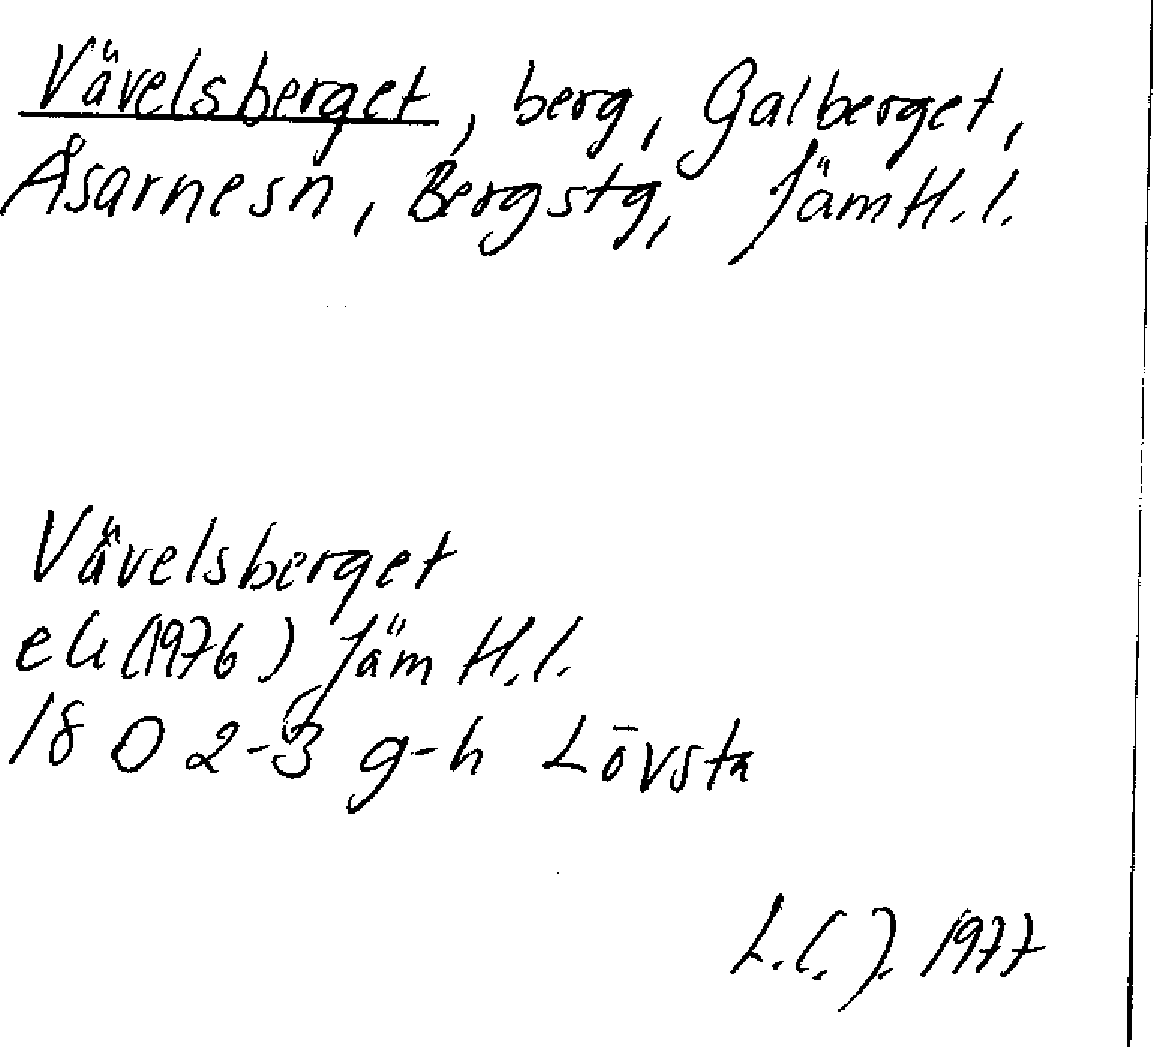 Vävelsberget, berg, Galberget,
Åsarnesn, Bergstg, Jäm H.l.
Vävelsberget
ek (1976) Jäm H.l.
18 D 2-3 g-h Lövsta
L.C.J. 1977